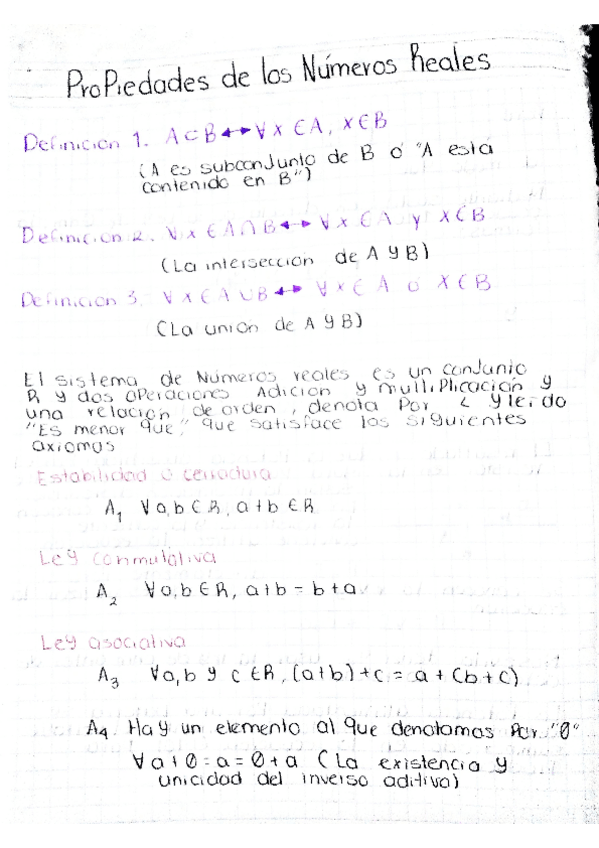 ProPiedades de los Números Reales
Definición 1. A⊂B ↔ ∀ x ∈ A, x ∈ B
(A es subconjunto de B ó "A está
contenido en B")
Definición 2. ∀ x ∈ A ∩ B ↔ ∀ x ∈ A y x ∈ B
(La intersección de A y B)
Definición 3. ∀ x ∈ A ∪ B ↔ ∀ x ∈ A ó x ∈ B
(La unión de A y B)
El sistema de Números reales es un conjunto
R y dos operaciones Adición y multiplicación y
una relación de orden, denota Por < y leído
"Es menor que" que satisface los siguientes
axiomas
Estabilidad o cerradura
A₁ ∀ a,b ∈ R, a+b ∈ R
Ley conmutativa
A₂ ∀ a,b ∈ R, a+b = b+a
Ley asociativa
A₃ ∀ a,b y c ∈ R, (a+b)+c = a+(b+c)
A₄ Hay un elemento al que denotamos Por "0"
∀ a+0=a=0+a (La existencia y
unicidad del inverso aditiva)